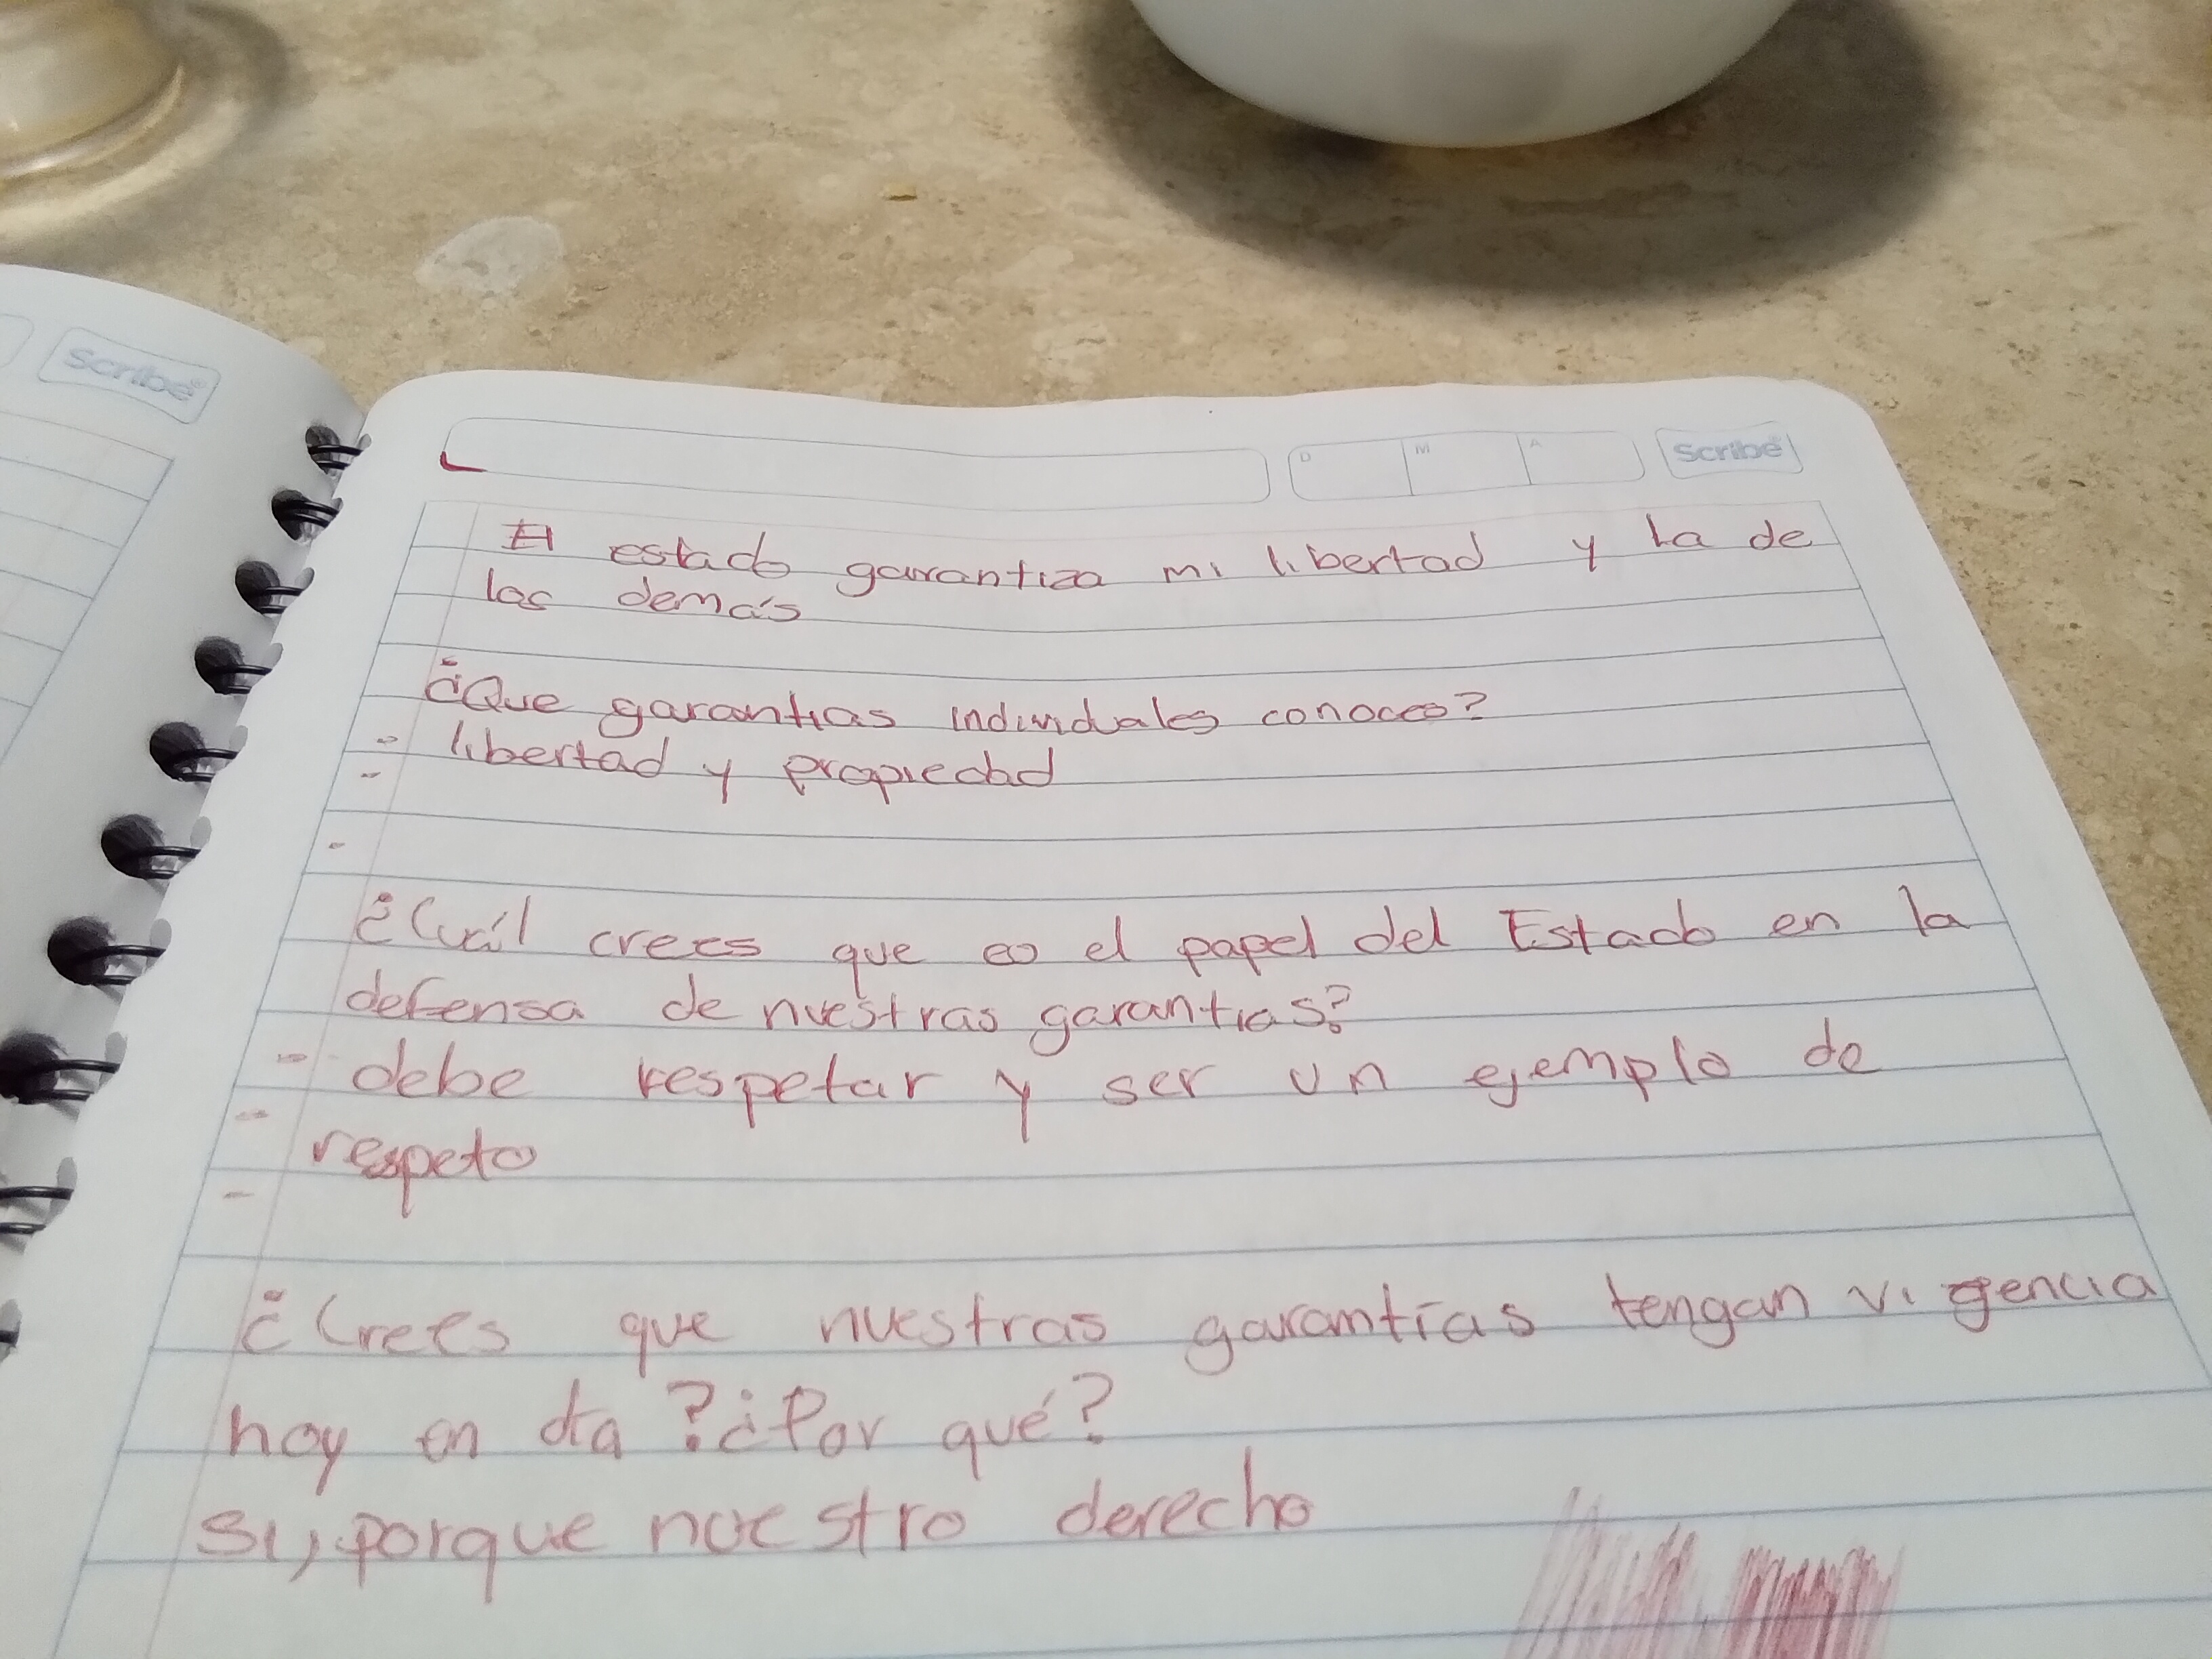 Scribe
D M A Scribe
El estado garantiza mi libertad y la de
los demás
¿Que garantias individuales conoces?
- libertad y propiedad
-
-
¿Cuál crees que es el papel del Estado en la
defensa de nuestras garantias?
- debe respetar y ser un ejemplo de
-
respeto
-
¿Crees que nuestras garantías tengan vigencia
hoy en día? ¿Por qué?
si, porque nuestro derecho